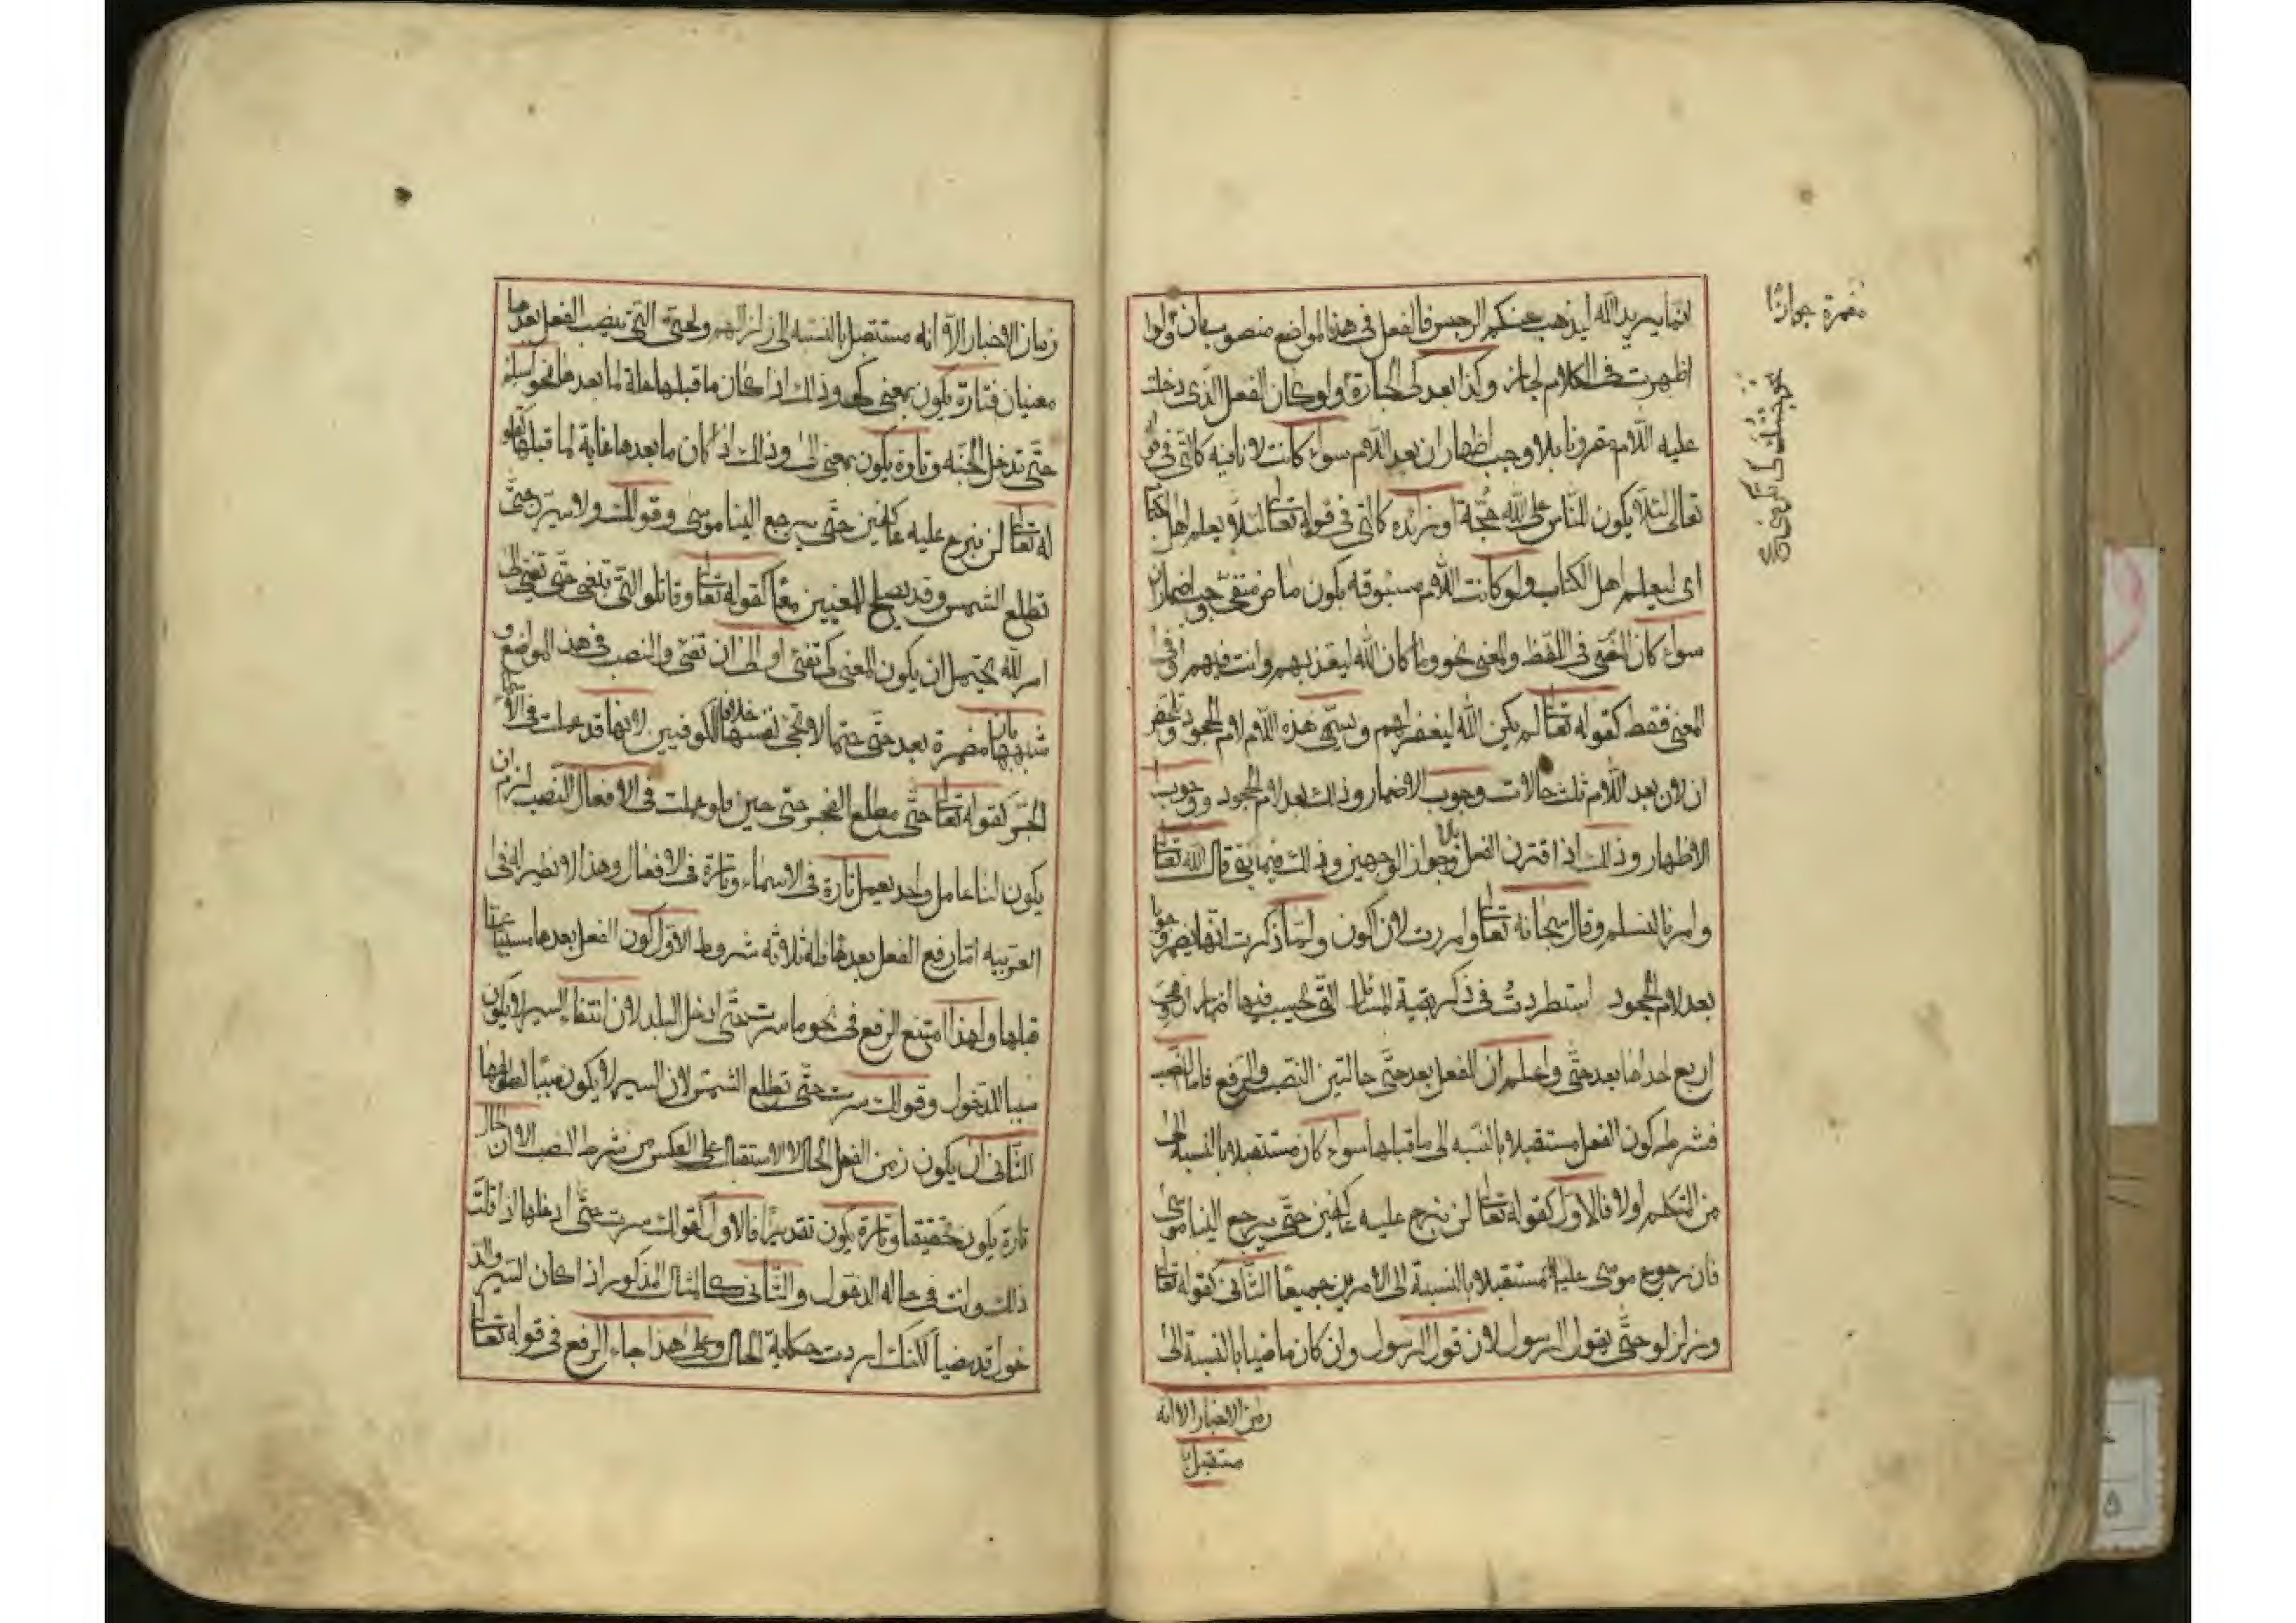 انما يريد الله ليذهب عنكم الرجس فالفعل في هذه المواضع منصوب بان ولوا
اظهرت في الكلام لجاز وكذا بعد كي الجارة ولو كان الفعل الذي دخلت
عليه اللام مقرونا بلا وجب اظهار ان بعد اللام سواء كانت لا نافيه كالتي في قو
تعالى لئلا يكون للناس على الله حجة او زائده كالتي في قوله تعا لئلا يعلم اهل الكتا
اى ليعلم اهل الكتاب ولو كانت اللام مسبوقه بكون ماض منفي وجب اضمار ان
سواء كان النفي في اللفظ والمعنى نحو وما كان الله ليعذبهم وانت فيهم او في
المعنى فقط كقوله تعا لم يكن الله ليغفر لهم ويسمى هذه اللام لام الجحود وتلخص
ان لان بعد اللام ثلث حالات وجوب الاضمار وذلك بعد لام الجحود ووجوب
الاظهار وذلك اذا اقترن الفعل بلا وجواز الوجهين وذلك فيما بقي قال الله تعا
وامرنا لنسلم وقال سبحانه تعا وامرت لان اكون ولما ذكرت انها تضمر وجوبا
بعد لام الجحود استطردت في ذكر بقية المسائل التي يجب فيها اضمار ان وهي
اربع احداها بعد حتى واعلم ان الفعل بعد حتى حالتين النصب والرفع فاما النصب
فشرطه كون الفعل مستقبلا بالنسبه الى ما قبلها سواء كان مستقبلا بالنسبة الى
من التكلم اولا فالاول كقوله تعا لن نبرح عليه عاكفين حتى يرجع الينا موسى
فان رجوع موسى عليه مستقبلا بالنسبة الى الامرين جميعا الثاني كقوله تعا
وزلزلو حتى يقول الرسول لان قول الرسول وان كان ماضيا بالنسبة الى
زمن الاخبار الا انه
مستقبل با
مضمرة جوازا
زمان الاخبار الا انه مستقبل بالنسبه الى زلزالهم ولحتى التي ينصب الفعل بعدها
معنيان فتارة يكون بمعنى كي وذلك اذا كان ما قبلها علة لما بعدها نحو اسلم
حتى تدخل الجنه وتارة يكون بمعنى الى وذلك اذا كان ما بعدها غاية لما قبلها كقو
له تعا لن نبرح عليه عاكفين حتى يرجع الينا موسى وقولك ولاسيرن حتى
تطلع الشمس وقد يصلح للمعنيين معا كقوله تعا وقاتلو التي تبغي حتى تفيئ الى
امر الله يحتمل ان يكون المعنى كي تفئ او الى ان تفئ والنصب في هذه المواضع و
شبهها بان مضمرة بعد حتى حتما لا بحتى نفسها خلافا للكوفيين لانها قد عملت في الاسماء
الجر كقوله تعا حتى مطلع الفجر حتى حين فلو عملت في الافعال النصب لزم ان
يكون لنا عامل واحد يعمل تارة في الاسماء وتارة في الافعال وهذا لا نظير له في
العربيه اما رفع الفعل بعدها فله ثلاثه شروط الاول كون الفعل بعدها مسببا عما
قبلها ولهذا امتنع الرفع في نحو ما سرت حتى ادخل البلد لان انتفاء السير لا يكون
سببا للدخول وقولك سرت حتى تطلع الشمس لان السير لا يكون سببا لطلوعها
الثاني ان يكون زمن الفعل الحال لا الاستقبال على العكس من شرط النصب الا ان الحال
تارة يكون تحقيقا وتارة يكون تقديرا فالاول كقولك سرت حتى ادخلها اذا قلت
ذلك وانت في حاله الدخول والثاني كالمثال المذكور اذا كان السير والد
خول قد مضيا لكنك اردت حكاية الحال وعلى هذا جاء الرفع في قوله تعا